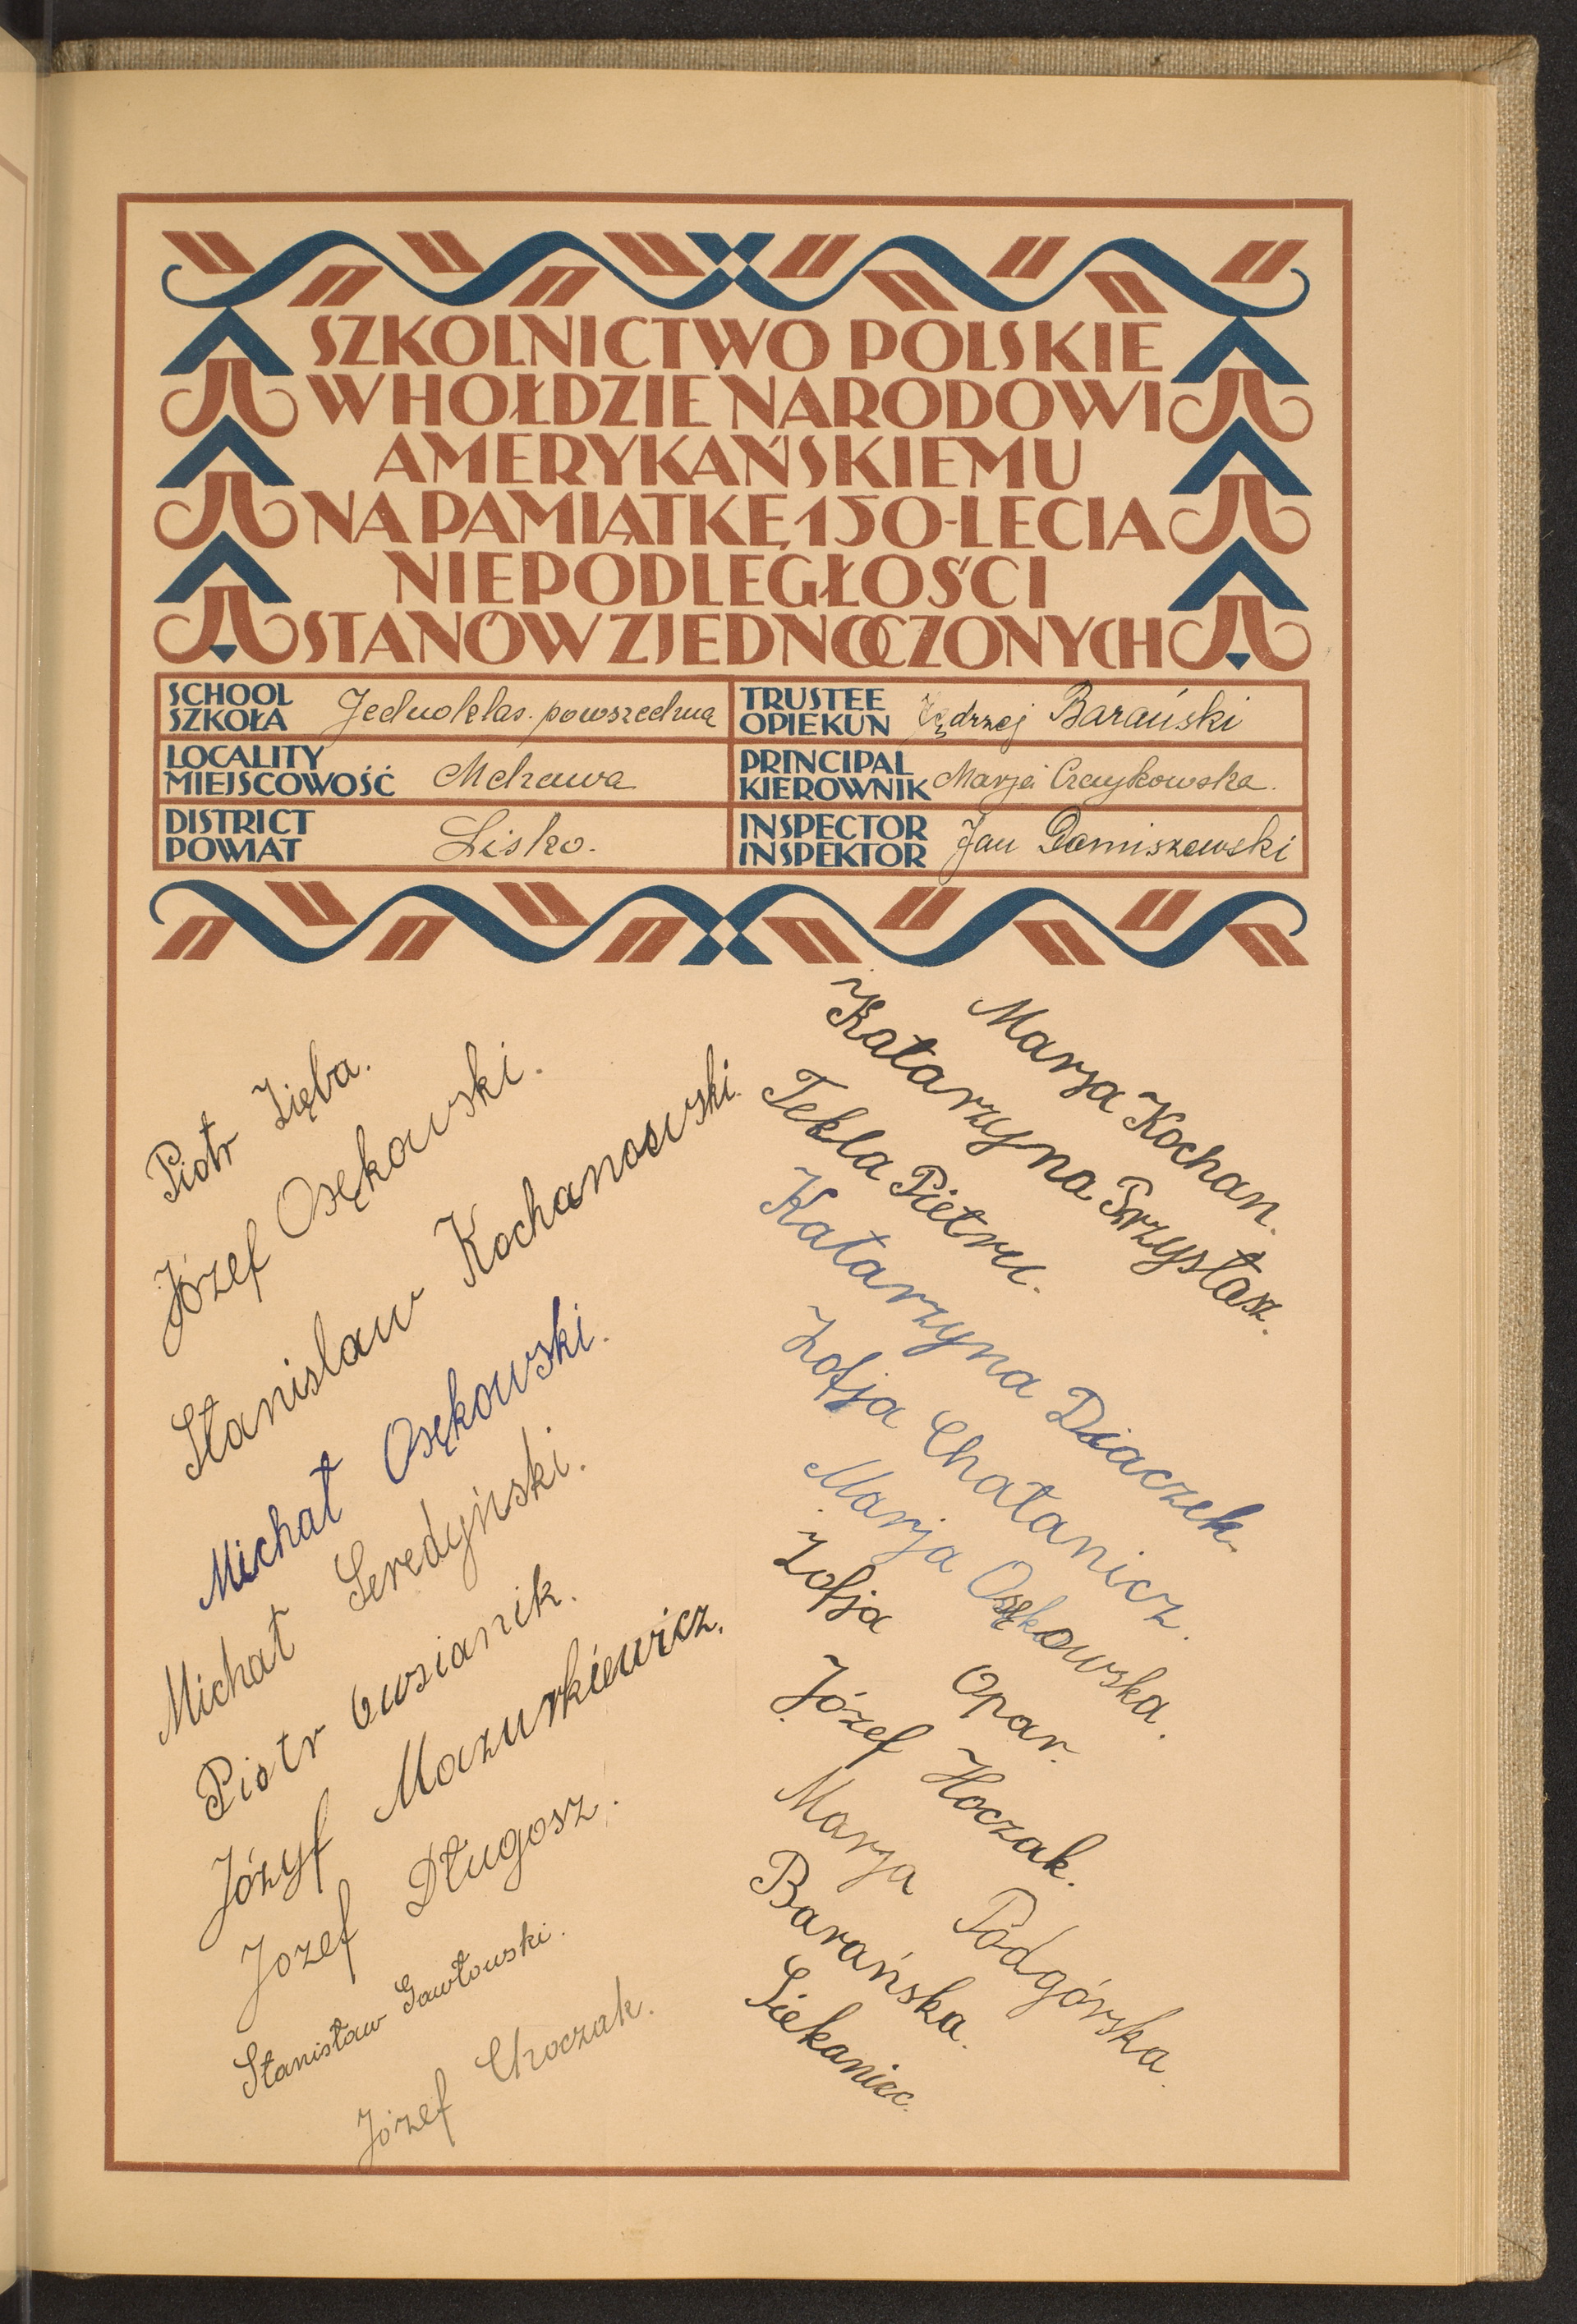 SZKOLNICTWO POLSKIE
W HOŁDZIE NARODOWI
AMERYKAŃSKIEMU
NA PAMIĄTKĘ 150-LECIA
NIEPODLEGŁOŚCI
STANÓW ZJEDNOCZONYCH
SCHOOL
SZKOŁA
Jednoklas. powszechna
TRUSTEE
OPIEKUN
Jędrzej Barański
LOCALITY
MIEJSCOWOŚĆ
Mchawa
PRINCIPAL
KIEROWNIK
Marja Czaykowska.
DISTRICT
POWIAT
Lisko.
INSPECTOR
INSPEKTOR
Jan Damiszewski
Piotr Zięba.
Józef Osękowski.
Stanislaw Kochanowski.
Michał Osękowski.
Michał Seredyński.
Piotr Owsianik.
Józyf Mazurkiewicz.
Jozef Długosz.
Stanisław Gawłowski.
Józef Choczak.
Marja Kochan.
Katarzyna Przystasz.
Tekla Pietru.
Katarzyna Diaczek.
Zofja Chatanicz.
Marja Osękowska.
Zofja Opar.
Józef Hoczak.
Marja Podgórska.
Barańska.
Siekaniec.